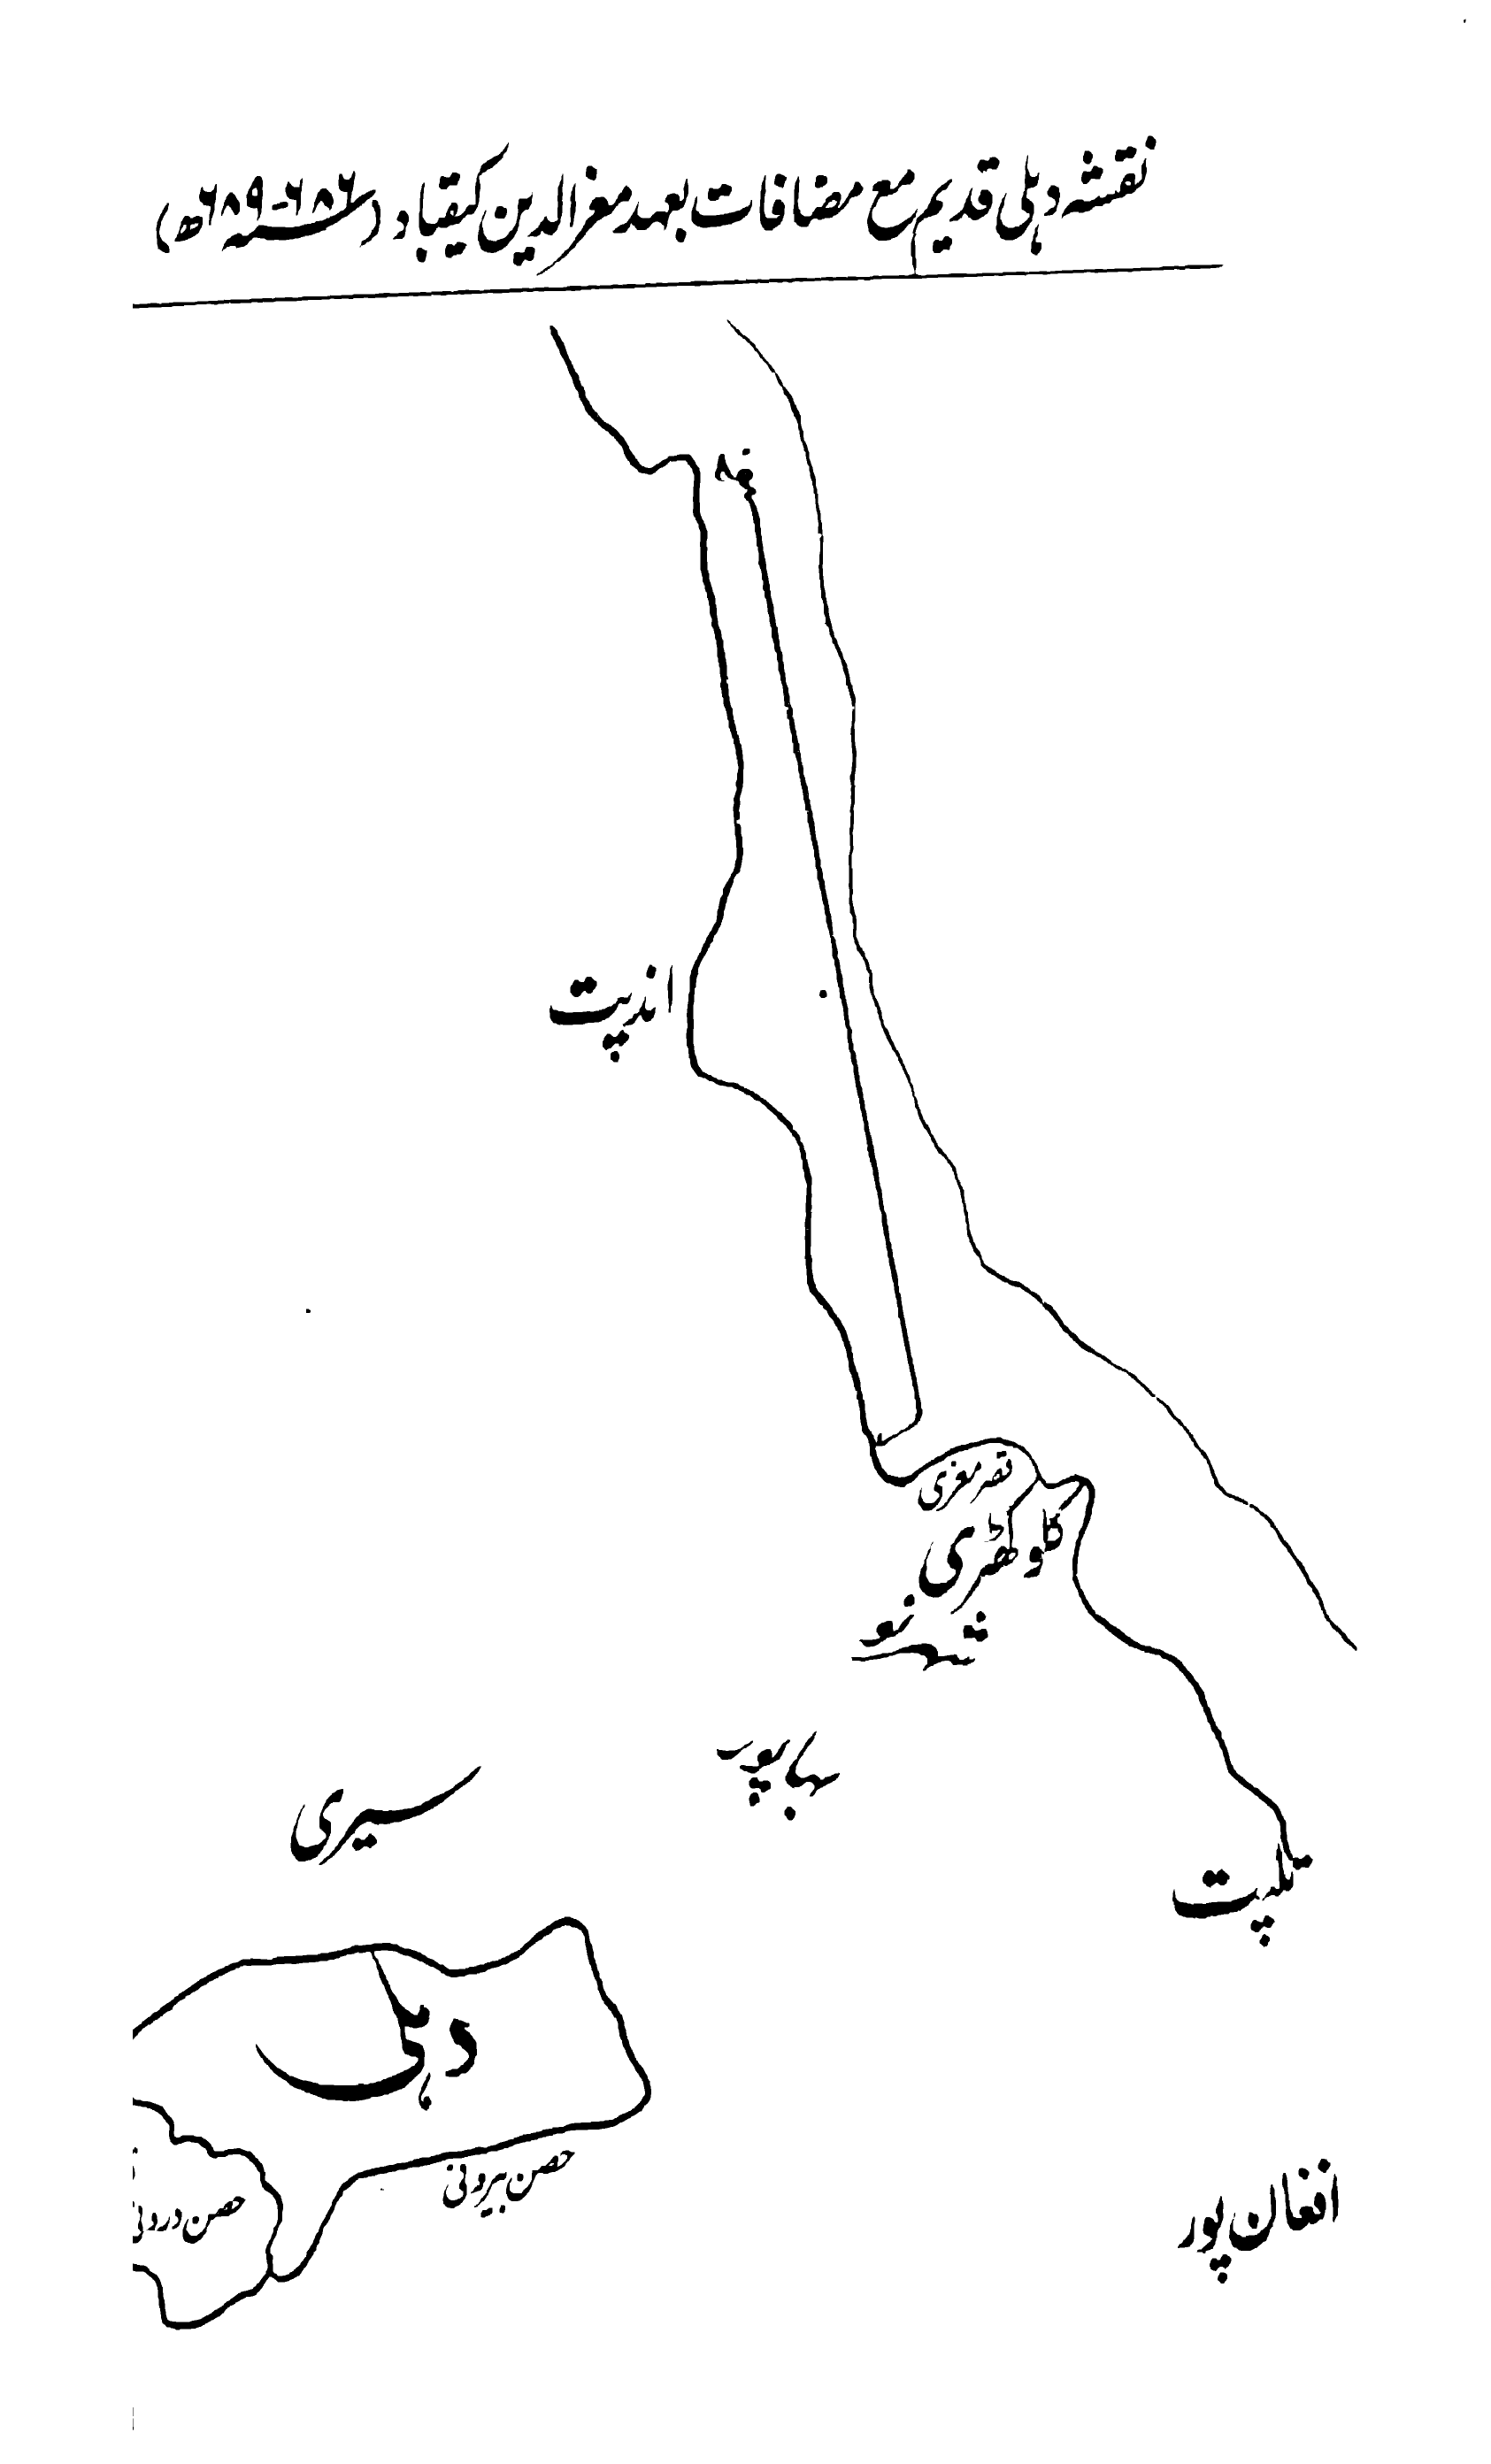 نقشہ دہلی قدیم مع مضافات بعہد معزالدین کیقباد (۶۸۶-۶۸۹ھ)
اندرپت
قصر معزی
کلوکھڑی
شہر نو
سہاپور
سیری
تلپت
دہلی
حصن بیرونی
حصن
افغان پور